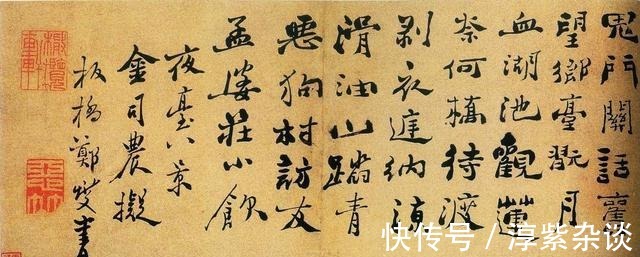 鬼門關話舊
望鄉臺翫月
血湖池觀蓮
奈何橋待渡
剥衣納涼
滑油山踏青
惡狗村訪友
孟婆莊小飲
夜臺八景
金司農擬
板橋鄭燮書
快传号 / 淳紫杂谈